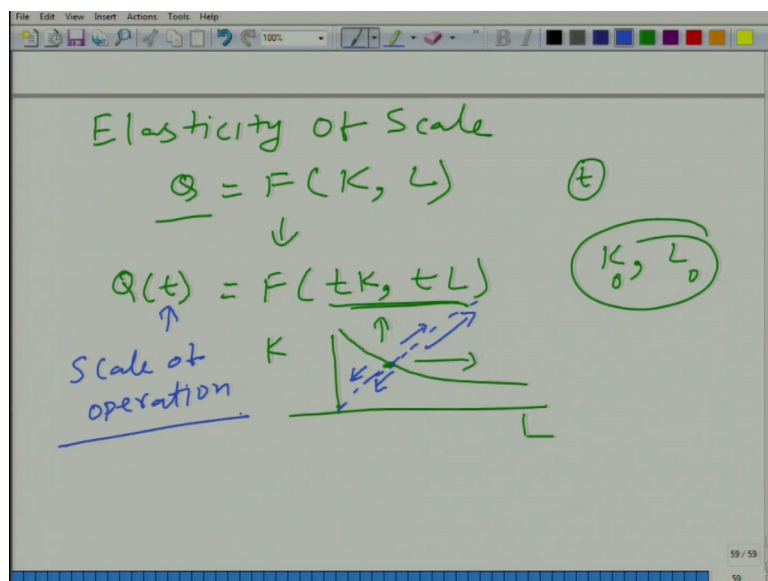 File Edit View Insert Actions Tools Help
100%
B I
Elasticity of Scale
Q = F(K, L)
t
↓
K₀, L₀
Q(t) = F(tK, tL)
Scale of
operation
K
L
59 / 59
59